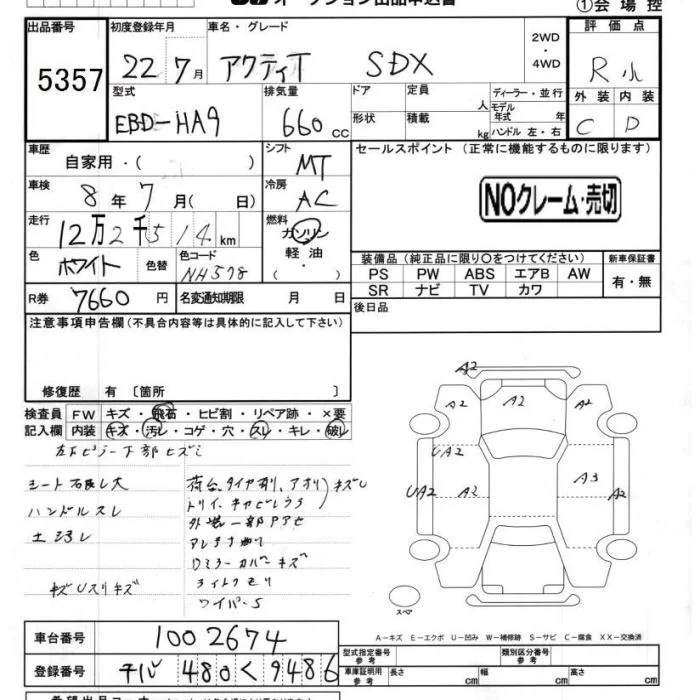 オークション出品申込書
①会場控
出品番号 初度登録年月 車名・グレード 2WD・4WD 評価点
5357 22年7月 アクティT SDX R小
型式 排気量 ドア 定員 人 ディーラー・並行 外装 内装
EBD-HA9 660cc 形状 積載 kg モデル年式 年 ハンドル左・右 C D
車歴 自家用・( ) シフト MT セールスポイント (正常に機能するものに限ります)
車検 8年7月( 日) 冷房 AC
NOクレーム・売切
走行 12万2千514km 燃料 ガソリン・軽油・( )
色 ホワイト 色替 色コード NH578
装備品(純正品に限り○をつけてください) 新車保証書
PS PW ABS エアB AW 有・無
SR ナビ TV カワ
R券 7660円 名変通知期限 月 日 後日品
注意事項申告欄(不具合内容等は具体的に記入して下さい)
修復歴 有 〔箇所 〕
検査員記入欄 FW キズ・飛石・ヒビ割・リペア跡・×要
内装 キズ・汚レ・コゲ・穴・スレ・キレ・破レ
シート
ハンドルスレ
外装一部
ドアミラーカバーキズ
ライトクモリ
ワイパーS
A2
A2 A2 A2
UA2
UA2 A2 A3 A2
スペア
A-キズ E-エクボ U-凹み W-補修跡 S-サビ C-腐食 XX-交換済
車台番号 1002674
登録番号 チバ 480 く 9486
型式指定番号 参考 類別区分番号 参考
車庫証明用 参考 長さ cm 幅 cm 高さ cm
希望出品コーナー